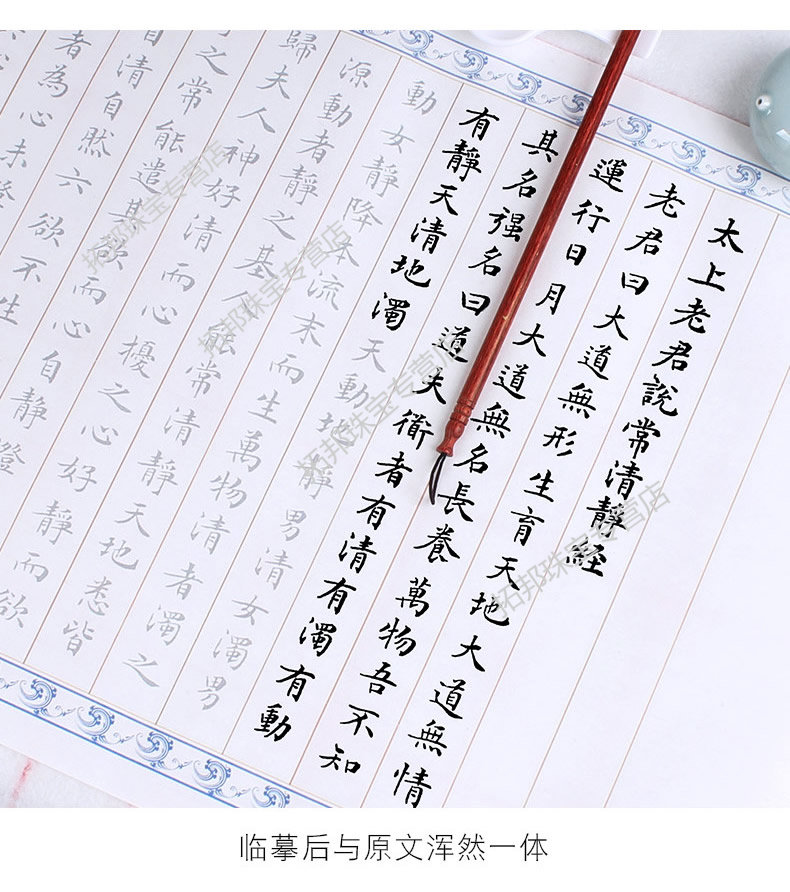 太上老君說常清靜經
老君曰大道無形生育天地大道無情
運行日月大道無名長養萬物吾不知
其名强名曰道夫衜者有清有濁有動
有靜天清地濁天動地靜男清女濁男
動女靜降夲流末而生萬物清者濁之
源動者靜之基人能常清靜天地悉皆
歸夫人神好清而心擾之心好靜而欲
之常能遣其欲而心自靜澄
清自然六欲不生
者為心未澄
拓邦珠宝专营店
拓邦珠宝专营店
拓邦珠宝专营店
拓邦珠宝专营店
临摹后与原文浑然一体